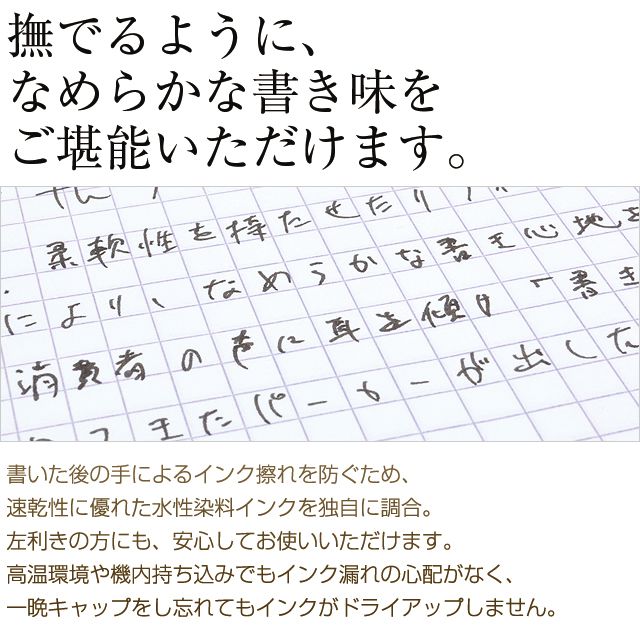 撫でるように、
なめらかな書き味を
ご堪能いただけます。
柔軟性を持たせたり
により、なめらかな書き心地を
消費者の声に耳を傾け「書き
きたパーカーが出した
書いた後の手によるインク擦れを防ぐため、
速乾性に優れた水性染料インクを独自に調合。
左利きの方にも、安心してお使いいただけます。
高温環境や機内持ち込みでもインク漏れの心配がなく、
一晩キャップをし忘れてもインクがドライアップしません。